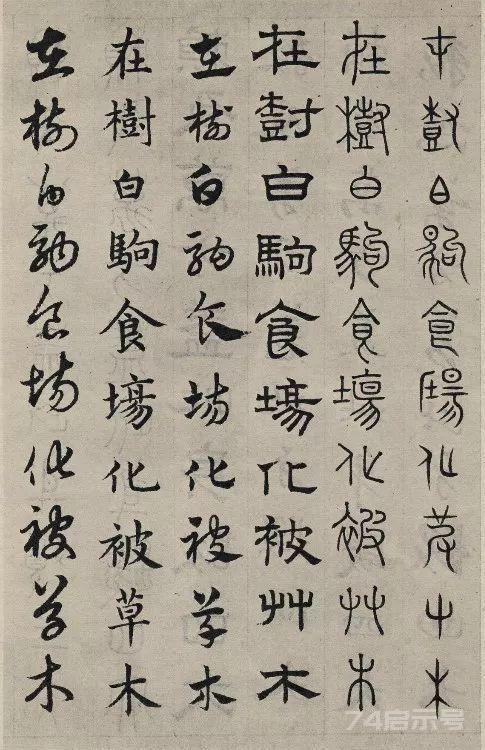 在樹白駒食場化被草木
在樹白駒食塲化被艸木
在尌白駒食塲化被艸木
在樹白駒食場化被草木
在樹白駒食塲化被草木
在樹白駒食場化被草木
74启示号